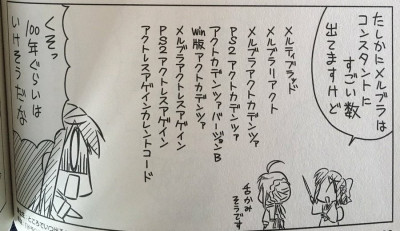 たしかにメルブラは
コンスタントに
すごい数
出てますけど
メルティブラッド
メルブラリアクト
メルブラアクトカデンツァ
PS2 アクトカデンツァ
アクトカデンツァバージョンB
Win版アクトカデンツァ
メルブラアクトレスアゲイン
PS2 アクトレスアゲイン
アクトレスアゲインカレントコード
舌かみ
そうです
くそっ
100年ぐらいは
いけそうだな